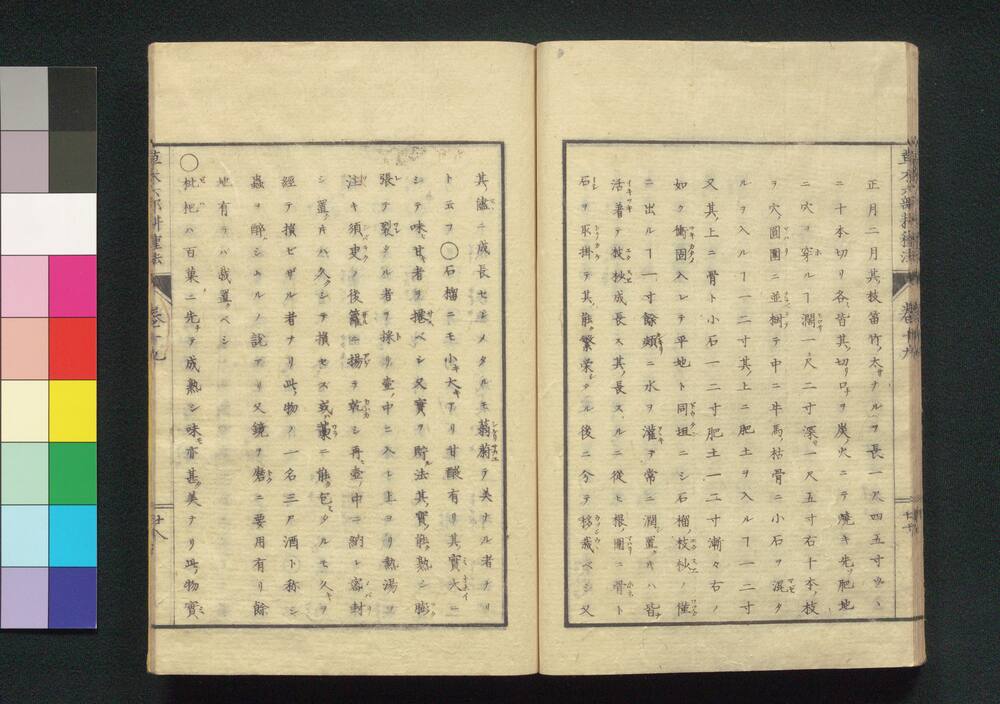 正月二月其枝笛竹ノ太サナルヲ長一尺四五寸ツヽ
ニ十本切リ各皆其切リ口ヲ炭ノ火ニテ焼キ先ツ肥地
ニ穴ヲ穿ルヿ濶一尺二寸深一尺五寸右十本ノ枝
ヲ穴ノ圓圍ニ並樹テ中ニ牛馬ノ枯骨ニ小石ヲ混タ
ルヲ入ルヿ一二寸其上ニ肥土ヲ入ルヿ一二寸
又其上ニ骨ト小石一二寸肥土一二寸漸々右ノ
如ク衝固入レテ平地ト同垣ニシ石榴ノ枝杪ノ僅
ニ出ルヿ一寸餘頻ニ水ヲ灌キ常ニ潤置クトキハ皆
活着テ枝杪成長ス其長スルニ從ヒ根ノ圍ニ骨ト
石ヲ取掛テ其能ク繁榮シタル後ニ分テ移栽ベシ又
其儘ニ成長セシメタルモ蓊蔚テ美ナル者ナリ
ト云フ〇石榴ニモ小大キアリ甘酸有リ其實大ニ
シテ味甘キ者ヲ擇ベシ又實ヲ貯ル法其實能熟シ膨
張テ裂タル者ヲ採リ壷ノ中ニ入レ上ヨリ熱湯ヲ
注キ須臾ノ後籮ニ揚ゲ乾シ再壷ノ中ニ納レ密封
シ置クトキハ久クシテ損セズ或ハ藁ニ能包ミタルモ久キヲ
經テ損ビザル者ナリ此物ノ一名三尸酒ト称シ
蟲ヲ醉シムルノ説アリ又鏡ヲ磨ニ要用有リ餘
地有ラバ栽置クベシ
〇枇杷ハ百菓ニ先チテ成熟シ味モ亦甚美ナリ此物實
草木六部耕種法
卷十九
十八